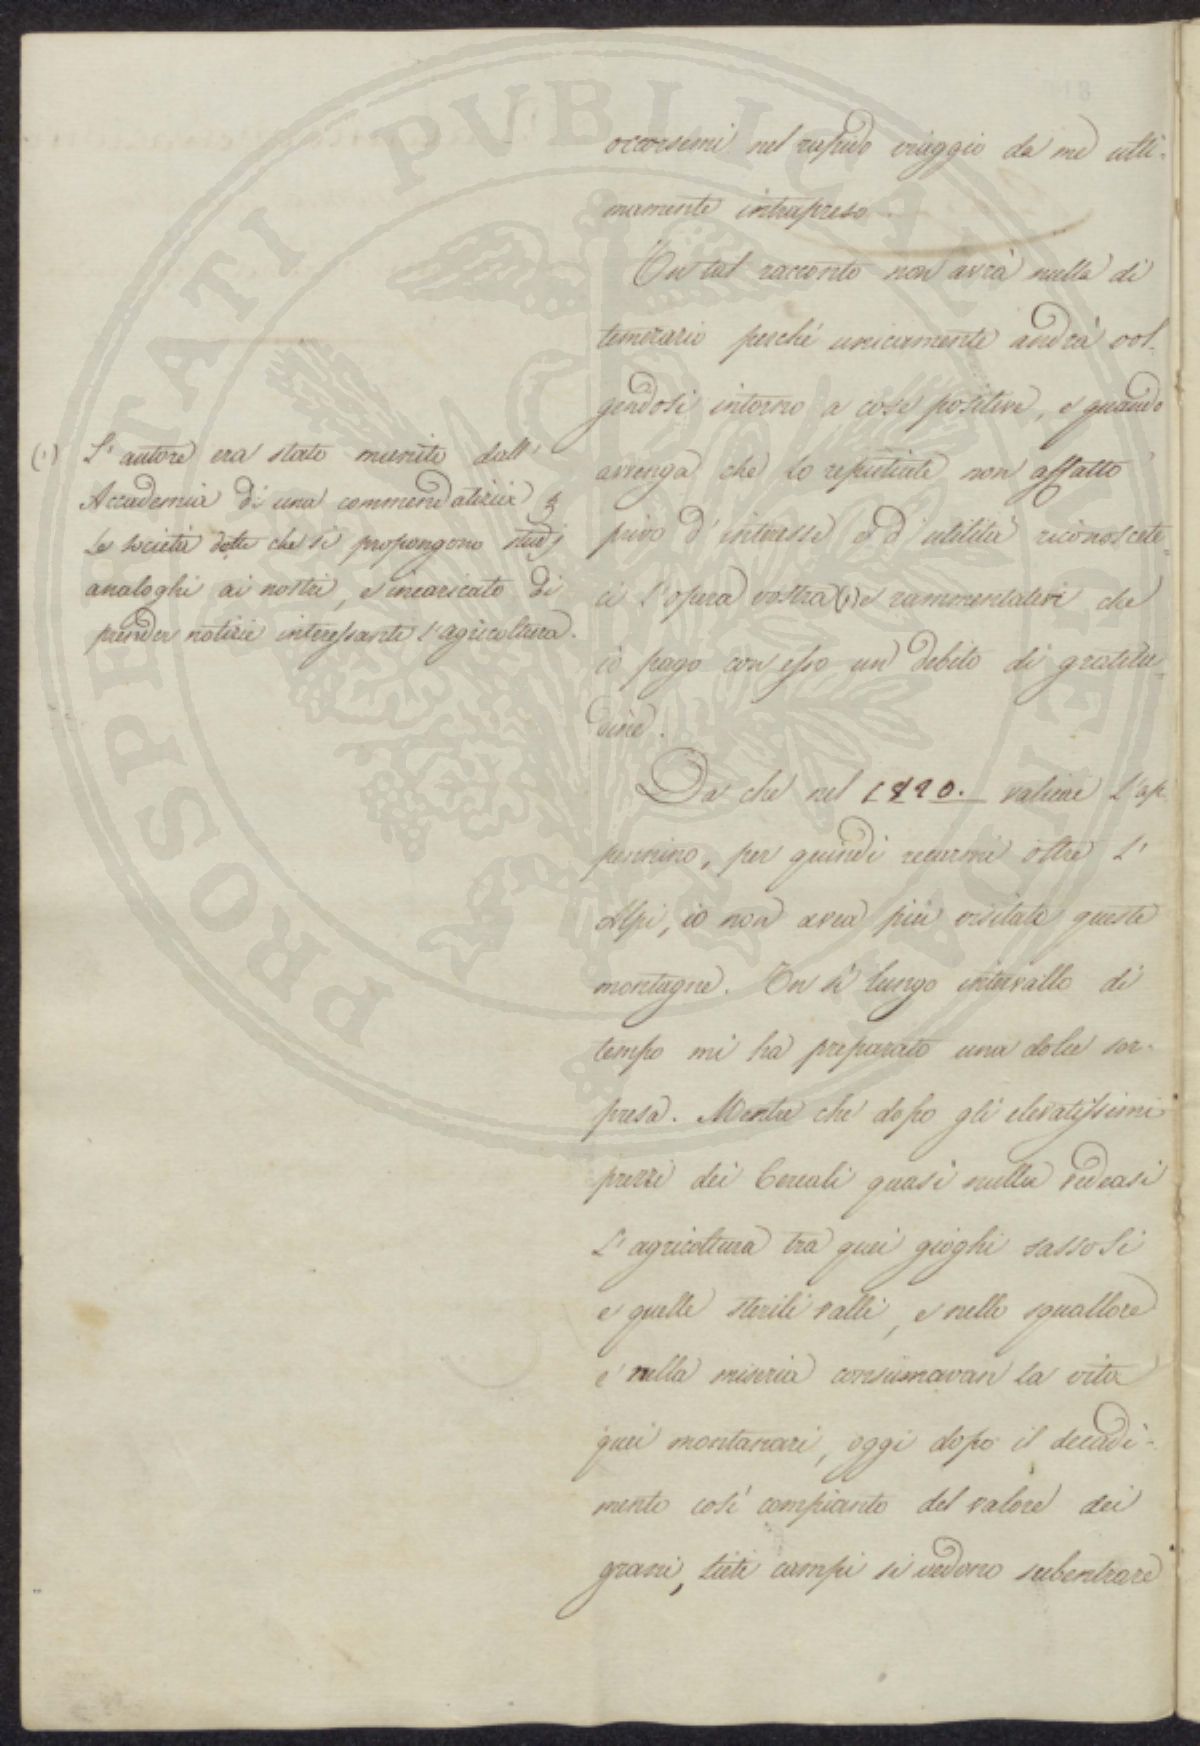 occorsemi nel rapido viaggio da me ulti-
mamente intrapreso.
Un tal racconto non avrà nulla di
temerario perchè unicamente andrà vol-
gendosi intorno a cose positive, e quando
avvenga che lo reputiate non affatto
privo d'interesse e d'utilità riconoscete-
ci l'opera vostra (1) e rammentatevi che
io pago con esso un debito di gratitu-
dine.
(1) L'autore era stato munito dall'
Accademia di una commendatizia p
le società dotte che si propongono studj
analoghi ai nostri, e incaricato di
prender notizie interessanti l'agricoltura.
Da che nel 1820. valicai l'ap
pennino, per quindi recarmi oltre l'
Alpi, io non avea più visitate queste
montagne. Un sì lungo intervallo di
tempo mi ha preparato una dolce sor-
presa. Mentre che dopo gli elevatissimi
prezzi dei Cereali quasi nulla vedeasi
l'agricoltura tra quei gioghi sassosi
e quelle sterili valli, e nello squallore
e nella miseria consumavan la vita
quei montanari, oggi dopo il decadi-
mento così compianto del valore dei
grani, lieti campi si vedono subentrare
PROSPERITATI PVBLICAE AVGENDAE